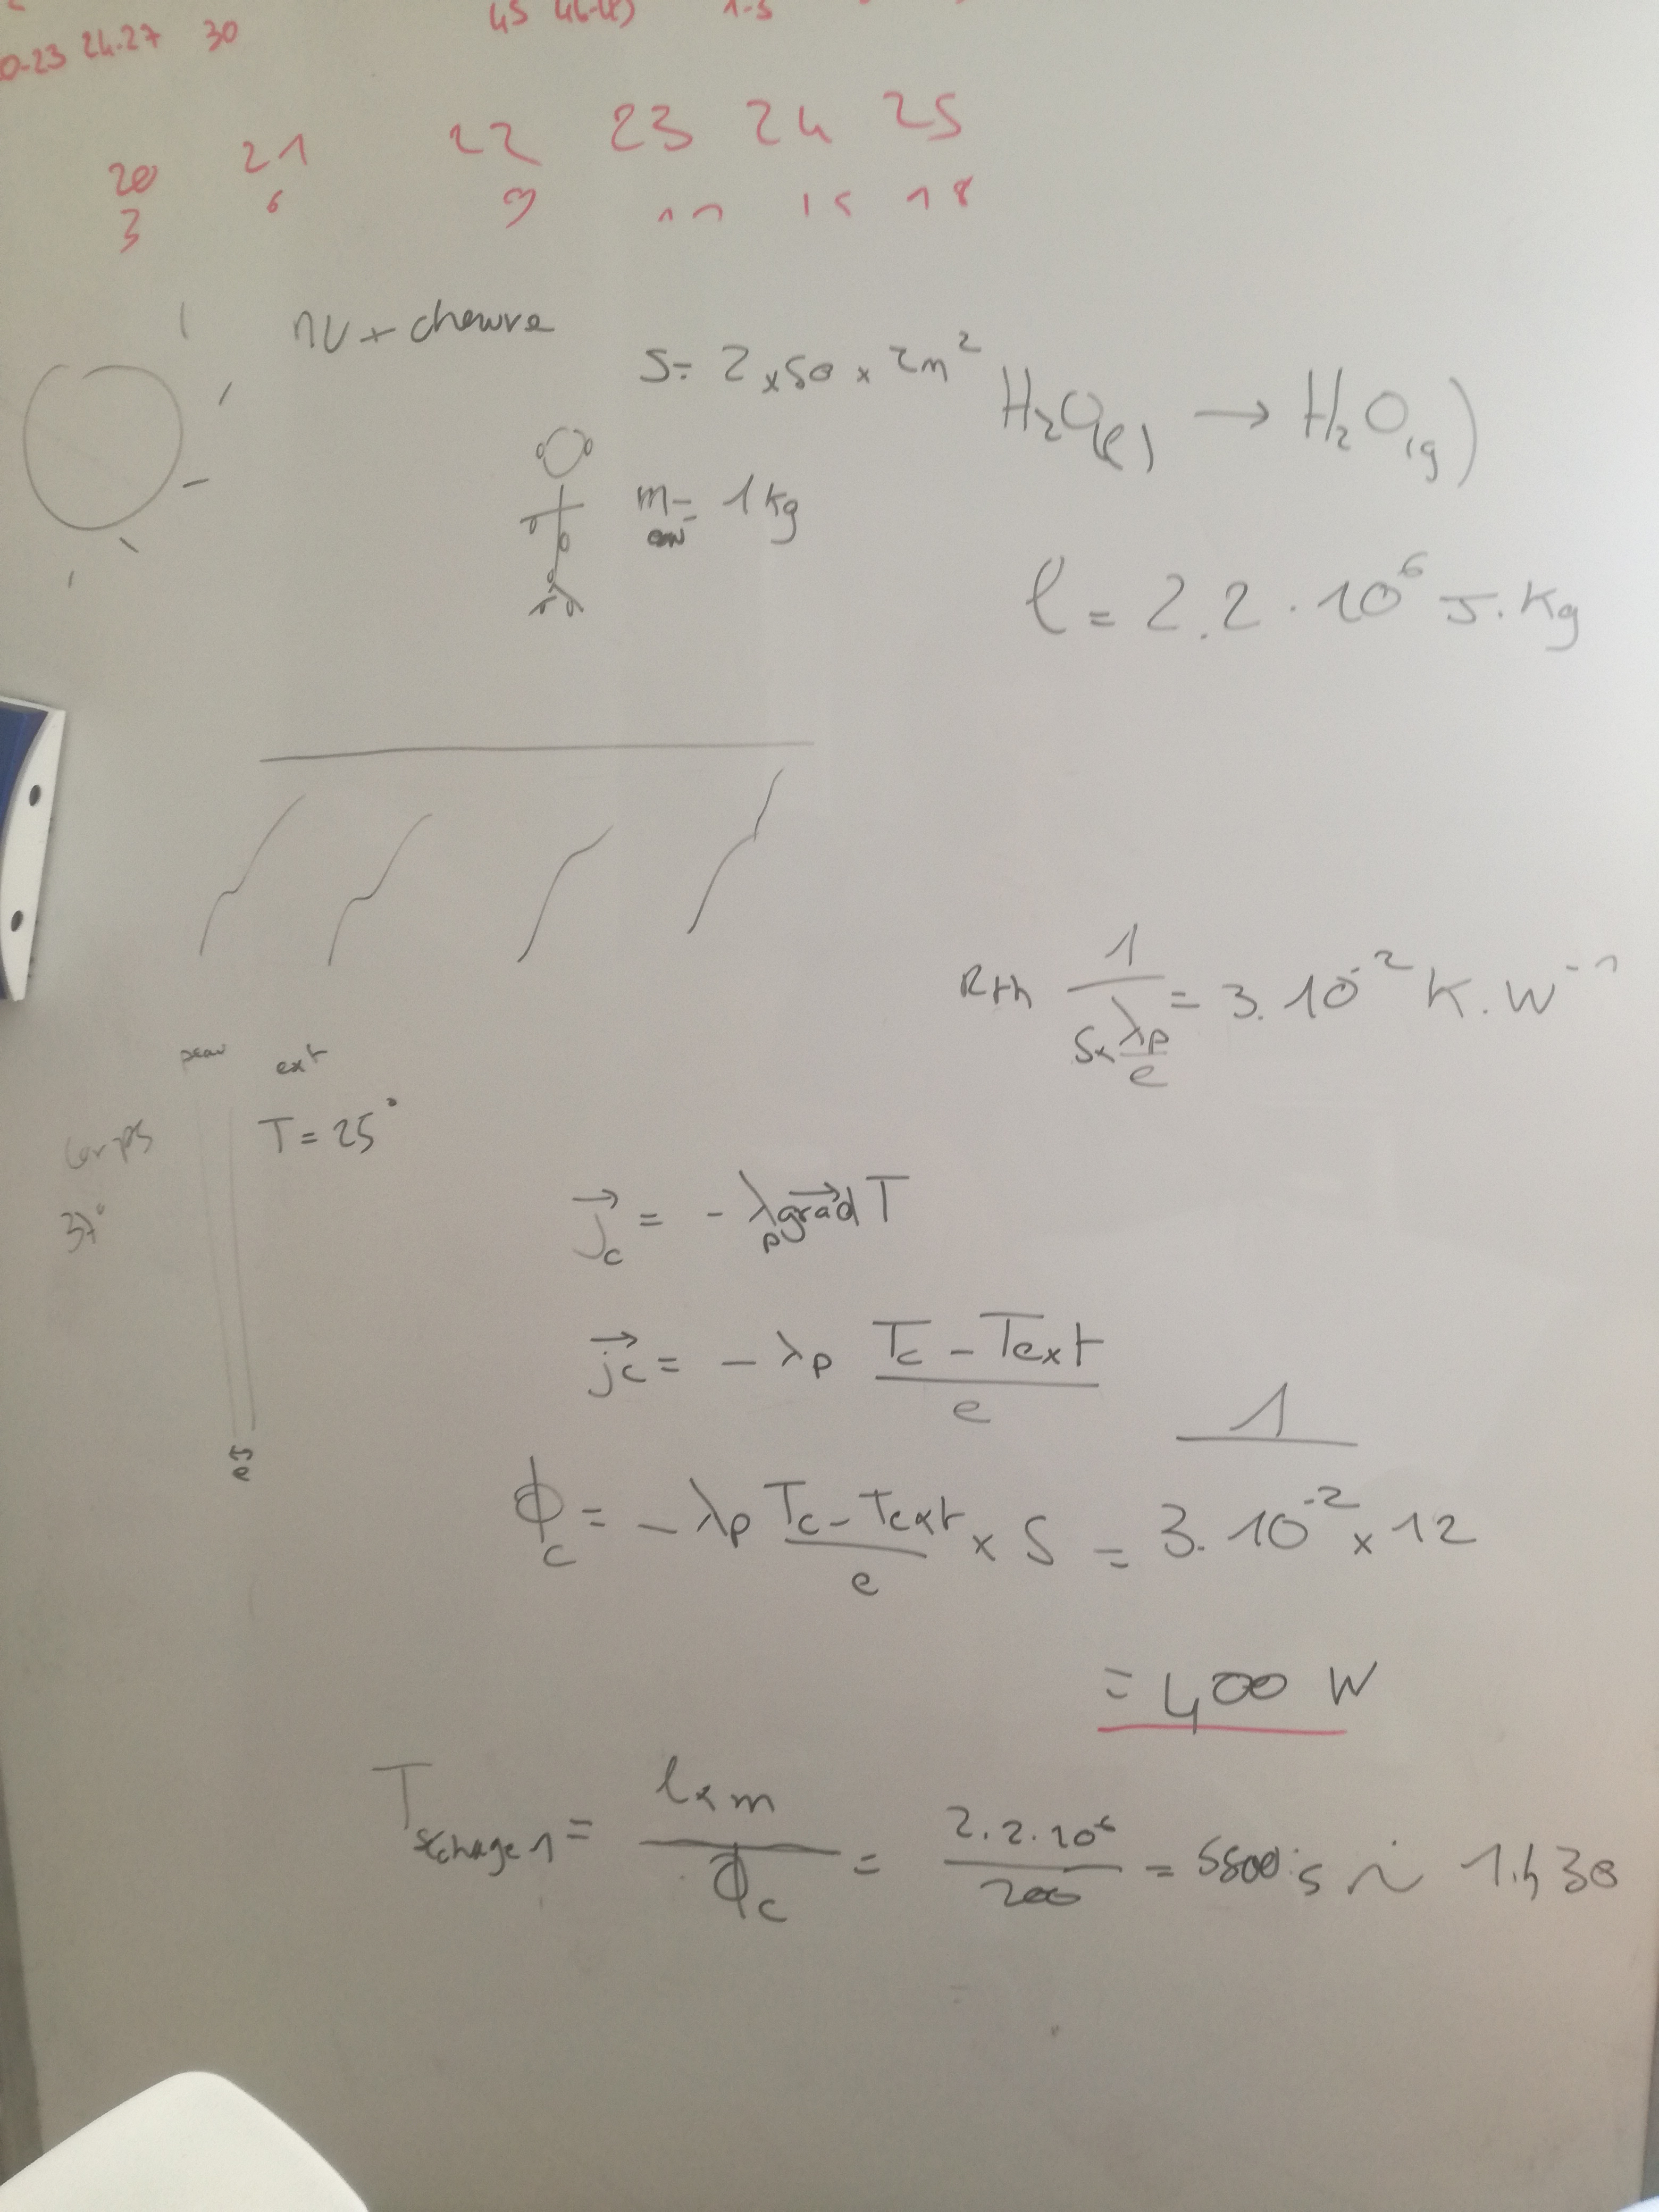 0-23 24-27 30
45 1-5
20 21 22 23 24 25
3 6 9 11 15 18
nu + chauve
S= 2 x 50 x 2m²
H₂O(l) → H₂O(g)
m eau = 1 kg
l = 2.2 . 10⁶ J.Kg
Rth 1 / (S x λp/e) = 3. 10⁻² K.W⁻¹
peau ext
corps T = 25°
37°
jc = - λp grad T
jc = - λp (Tc - Text) / e
e
ϕc = - λp (Tc - Text) / e x S = 1 / 3. 10⁻² x 12
= 400 W
Tsechage1 = l x m / ϕc = 2.2.10⁶ / 200 = 5500 s ~ 1.h 30